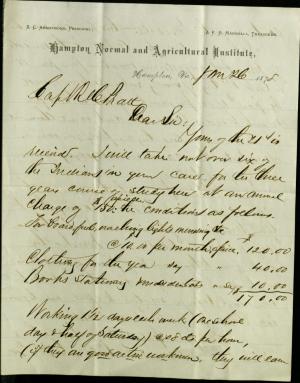 S. C. ARMSTRONG, PRINCIPAL. J. F. B. MARSHALL, TREASURER.
Hampton Normal and Agricultural Institute,
Hampton, Va. Jan 26 187
Capt R H Pratt
Dear Sir,
Yours of the 21st is
received. I will take not over six of
the Indians in your care for the three
years course of study here at an annual
charge of the conditions as follows
For board, washing lights mending &c
@ 10.00 per month apiece 120.00
Clothing for the year say 40.00
Books Stationery say 10.00
170.00
Working two days each week (the whole
day & half of Saturday) @ 8 cts per hour,
(if they are good active workmen, they will earn